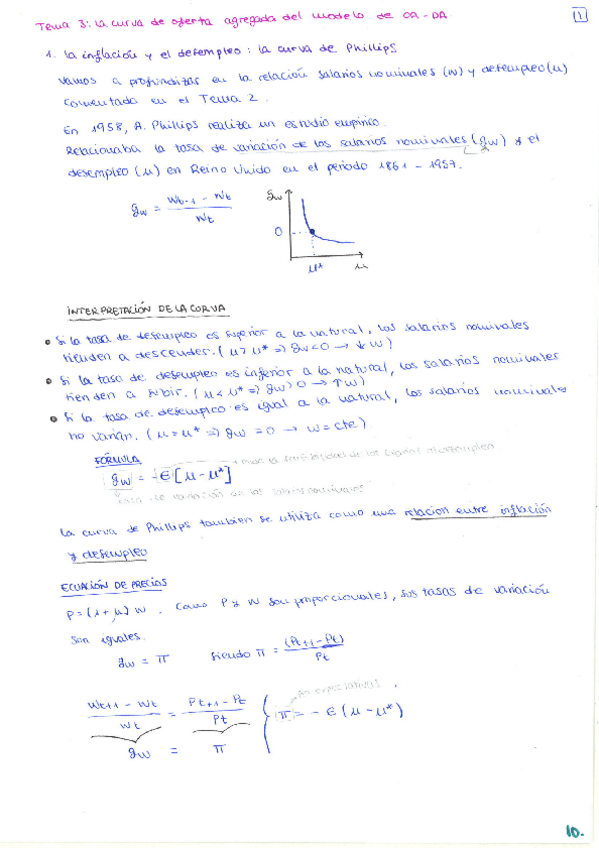 Tema 3: La curva de oferta agregada del modelo de OA-DA
1
1. La inflación y el desempleo: la curva de Phillips
Vamos a profundizar en la relación salarios nominales (w) y desempleo (u)
comentada en el Tema 2.
En 1958, A. Phillips realiza un estudio empírico.
Relacionaba la tasa de variación de los salarios nominales (gw) y el
desempleo (u) en Reino Unido en el periodo 1861 - 1957.
gw = (Wt-1 - Wt) / Wt
gw
0
u*
u
INTERPRETACIÓN DE LA CURVA
• Si la tasa de desempleo es superior a la natural, los salarios nominales
tienden a descender. (u > u* => gw < 0 → ↓ w)
• Si la tasa de desempleo es inferior a la natural, los salarios nominales
tienden a subir. (u < u* => gw > 0 → ↑ w)
• Si la tasa de desempleo es igual a la natural, los salarios nominales
no varían. (u = u* => gw = 0 → w = cte)
FÓRMULA
mide la sensibilidad de los salarios al desempleo
gw = - ∈ [u - u*]
tasa de variación en los salarios nominales
La curva de Phillips tambien se utiliza como una relacion entre inflación
y desempleo
ECUACIÓN DE PRECIOS
P = (1 + μ) w . Como P y W son proporcionales, sus tasas de variación
son iguales.
gw = π siendo π = (Pt+1 - Pt) / Pt
sin expectativas
(Wt+1 - Wt) / Wt = (Pt+1 - Pt) / Pt { π = - ∈ (u - u*)
gw = π
10.